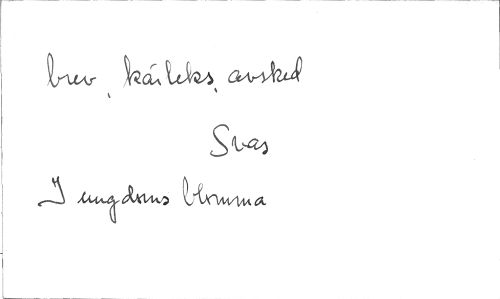 brev, kärleks, avsked
Svas
I ungdoms blomma